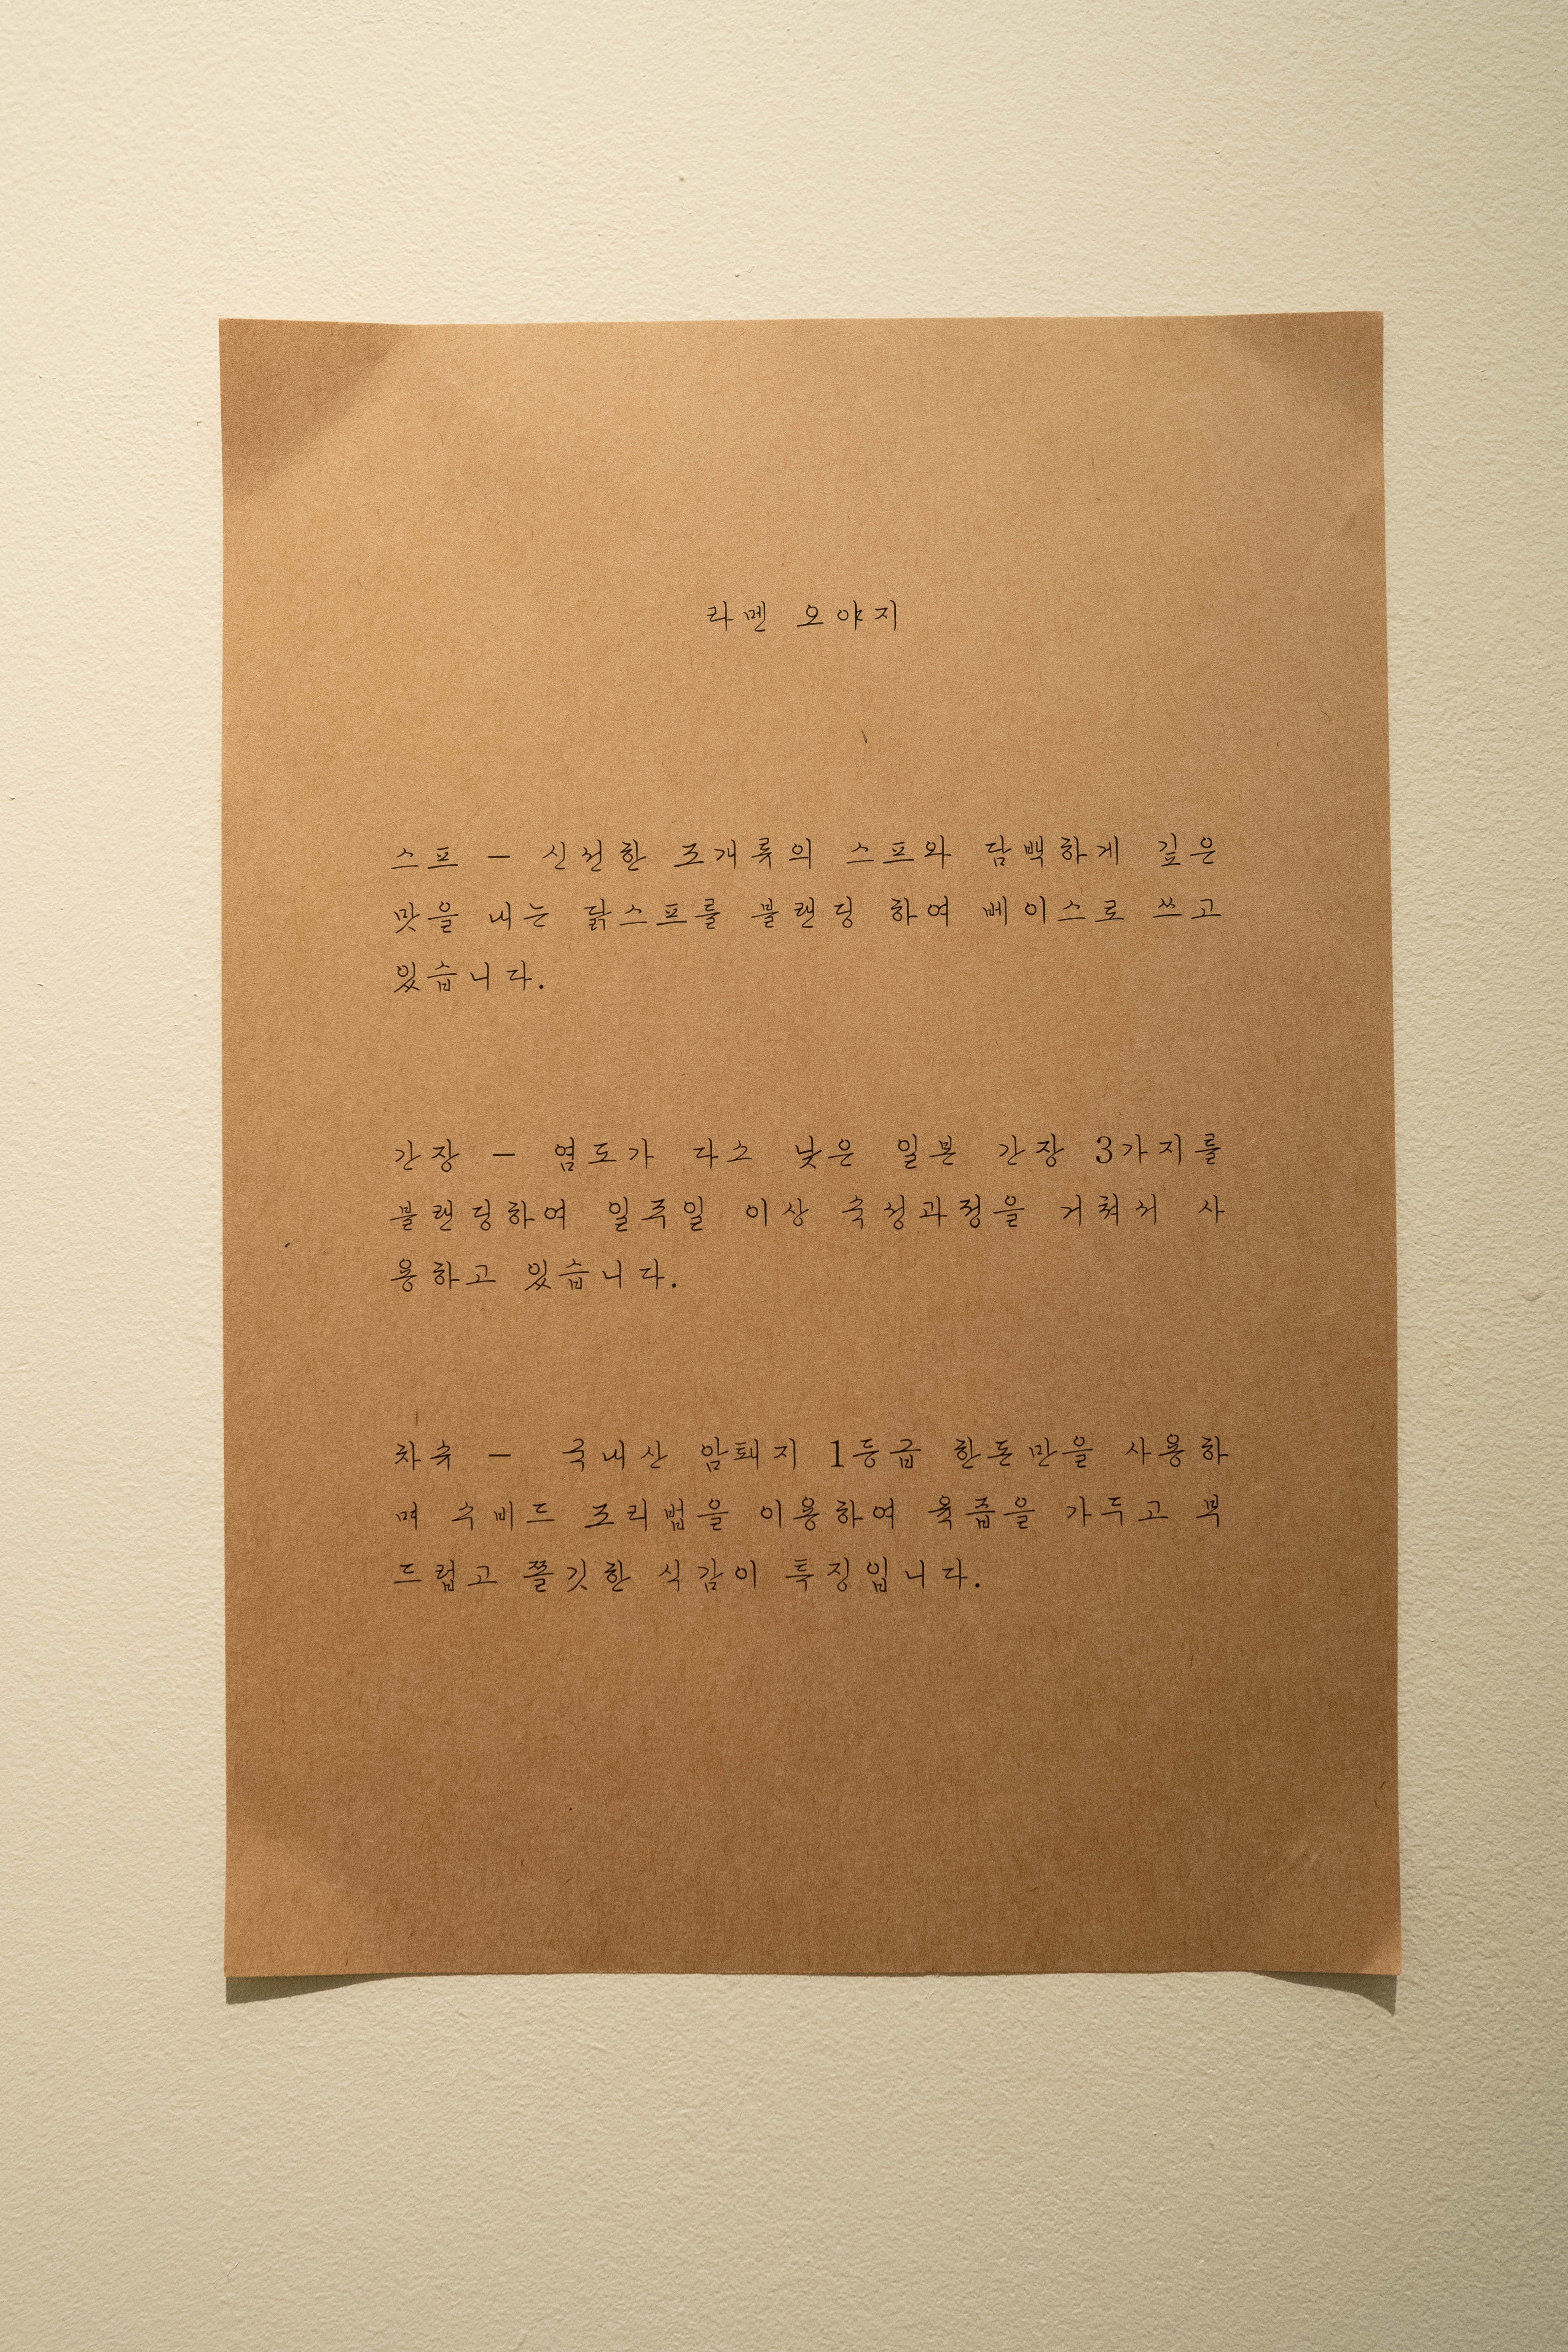 라멘 오야지
스프 - 신선한 조개류의 스프와 담백하게 깊은
맛을 내는 닭스프를 블랜딩 하여 베이스로 쓰고
있습니다.
간장 - 염도가 다소 낮은 일본 간장 3가지를
블랜딩하여 일주일 이상 숙성과정을 거쳐서 사
용하고 있습니다.
차슈 - 국내산 암퇘지 1등급 한돈만을 사용하
며 수비드 조리법을 이용하여 육즙을 가두고 부
드럽고 쫄깃한 식감이 특징입니다.